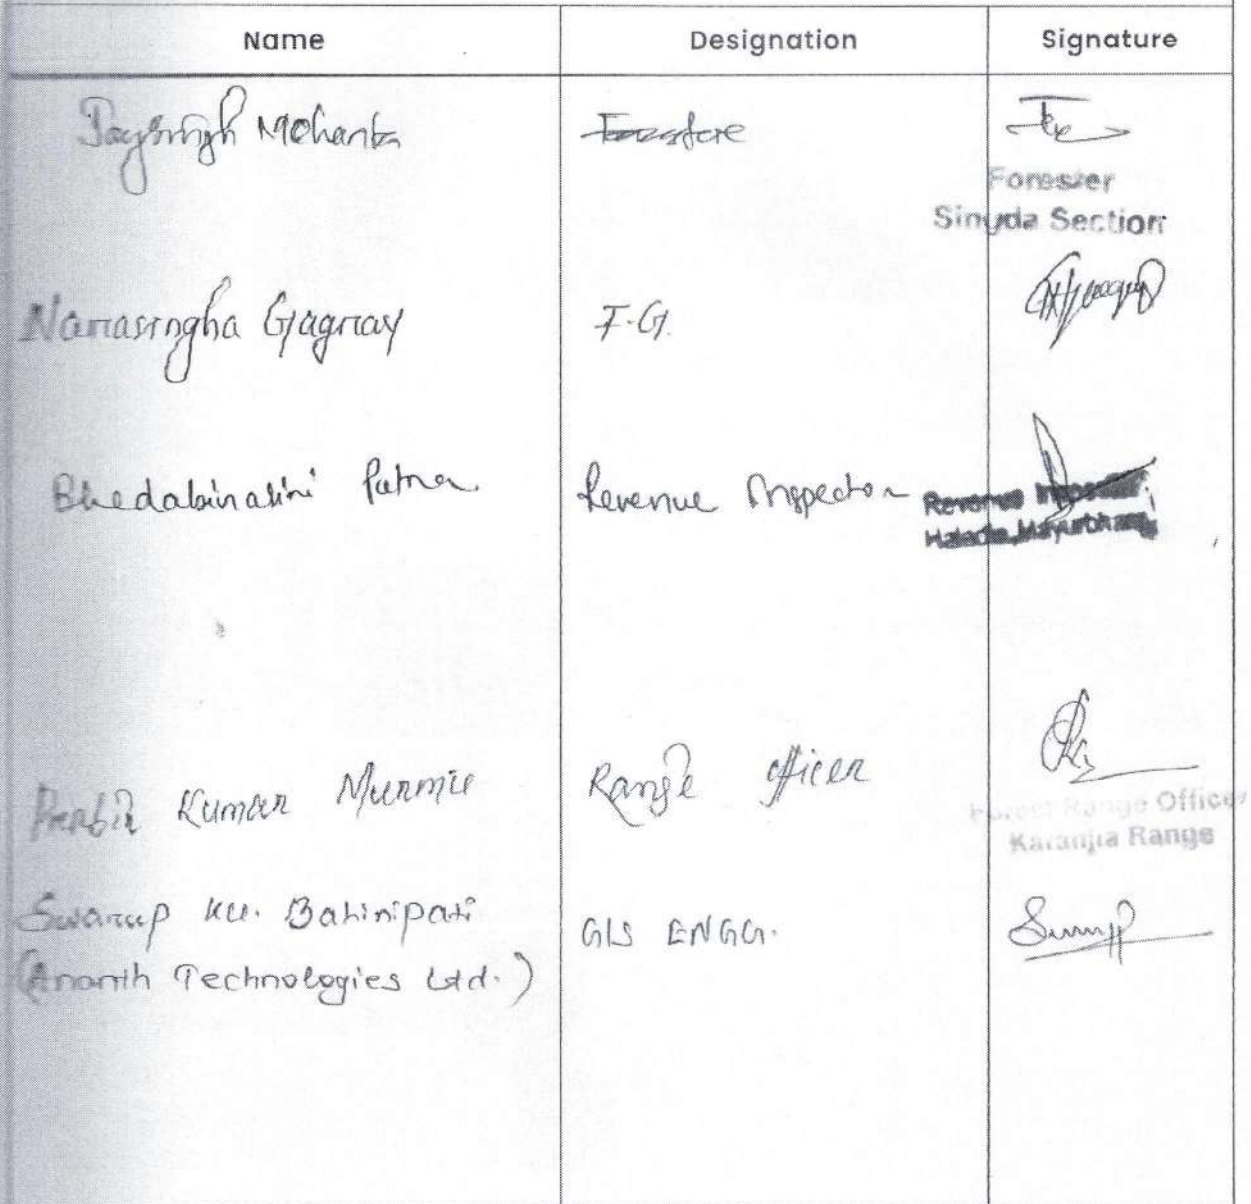 Name Designation Signature
Jaysingh Mohanta Forestere
Forester
Singda Section
Narasingha Gagray F.G.
Bhedabinasini Patra Revenue Inspector
Revenue Inspector
Haladia, Mayurbhanj
Prabir Kumar Murmu Range Officer
Forest Range Officer
Karanjia Range
Swarup Ku. Bahinipati GIS ENGG.
(Ananth Technologies Ltd.)